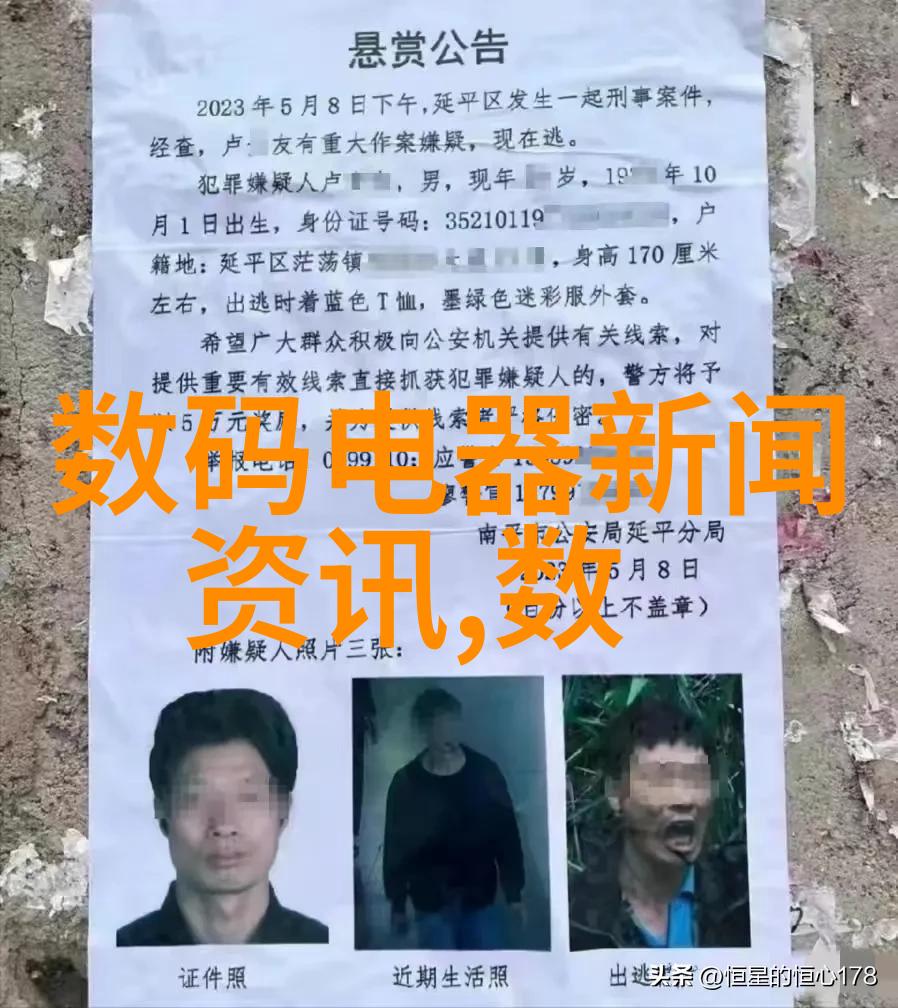 悬赏公告
2023年5月8日下午,延平区发生一起刑事案件,
经查,卢 友有重大作案嫌疑,现在逃。
犯罪嫌疑人卢 ,男,现年 岁,19 年10
月1日出生,身份证号码:35210119 ,户
籍地:延平区茫荡镇 ,身高170厘米
左右,出逃时着蓝色T恤,墨绿色迷彩服外套。
希望广大群众积极向公安机关提供有关线索,对
提供重要有效线索直接抓获犯罪嫌疑人的,警方将予
5万元奖励, 线索者严格保密
数码电器新闻
资讯,数
举报电话 0 99 10; 应警
廖警官1 799
南平市公安局延平分局
2023年5月8日
以上不盖章)
附嫌疑人照片三张:
证件照
近期生活照
出逃
头条 @恒星的恒心178